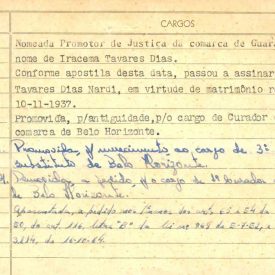 CARGOS
Nomeada Promotor de Justiça da comarca de Guar
nome de Iracema Tavares Dias.
Conforme apostila desta data, passou a assinar
Tavares Dias Nardi, em virtude de matrimônio r
10-11-1937.
Promovida, p/antiguidade, p/o cargo de Curador
comarca de Belo Horizonte.
Promovida, p/ merecimento ao cargo de 3º
substituto de Belo Horizonte.
Removida, a pedido, p/o cargo de 1º curador
de Belo Horizonte.
Aposentada, a pedido, nos termos do art.
30, do art. 116, letra "B" da lei nº
3.214, de 16-10-64.